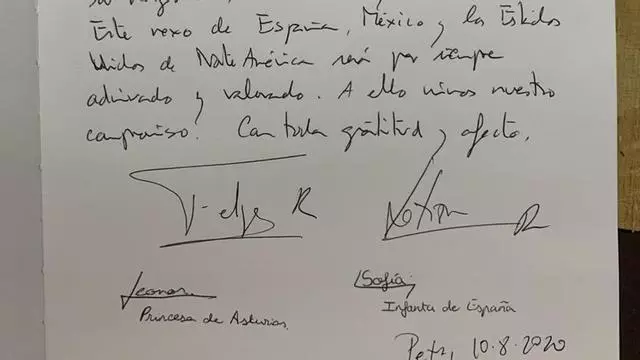 Este nexo de España, México y los Estados
Unidos de Norte América será por siempre
admirado y valorado. A ello nuestro
compromiso! Con toda gratitud y afecto,
Felipe R
Letizia R
Leonor
Sofía
Princesa de Asturias
Infanta de España
Petra, 10.8.2020